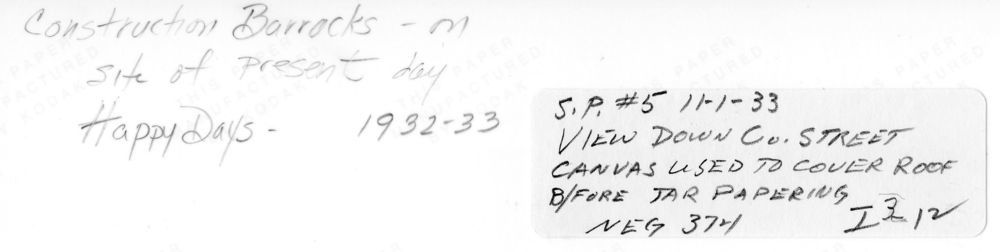 Construction Barracks - on
site of present day
Happy Days - 1932-33
S.P. #5 11-1-33
VIEW DOWN CO. STREET
CANVAS USED TO COVER ROOF
B/FORE TAR PAPERING
NEG 374
I 3 12
THIS PAPER
MANUFACTURED
KODAK